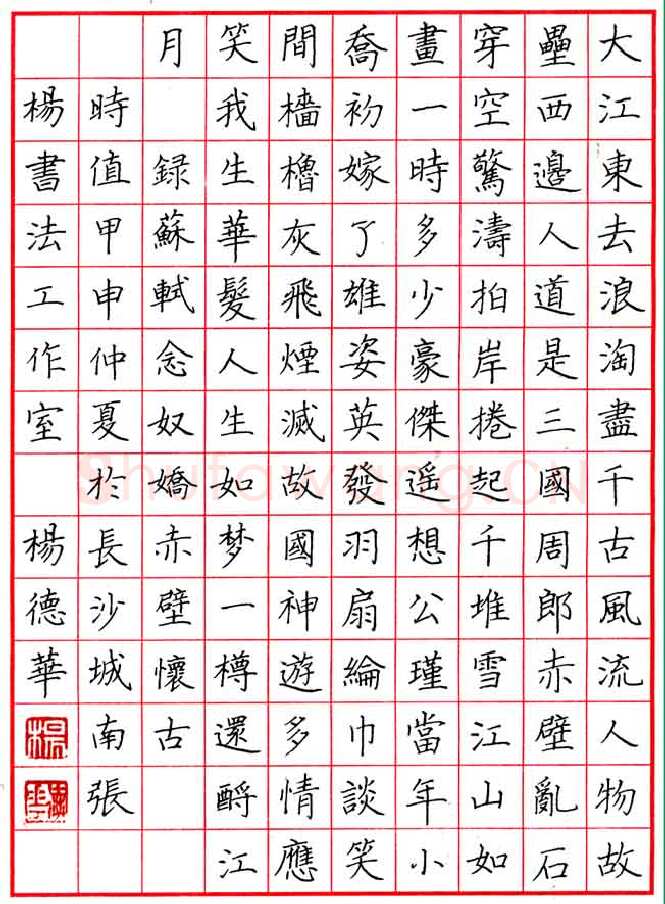 大江東去浪淘盡千古風流人物故
壘西邊人道是三國周郎赤壁亂石
穿空驚濤拍岸捲起千堆雪江山如
畫一時多少豪傑遥想公瑾當年小
喬初嫁了雄姿英發羽扇綸巾談笑
間檣櫓灰飛煙滅故國神遊多情應
笑我生華髮人生如梦一樽還酹江
月 録蘇軾念奴嬌赤壁懷古
時值甲申仲夏於長沙城南張
楊書法工作室 楊德華
楊
Shufawang.CN